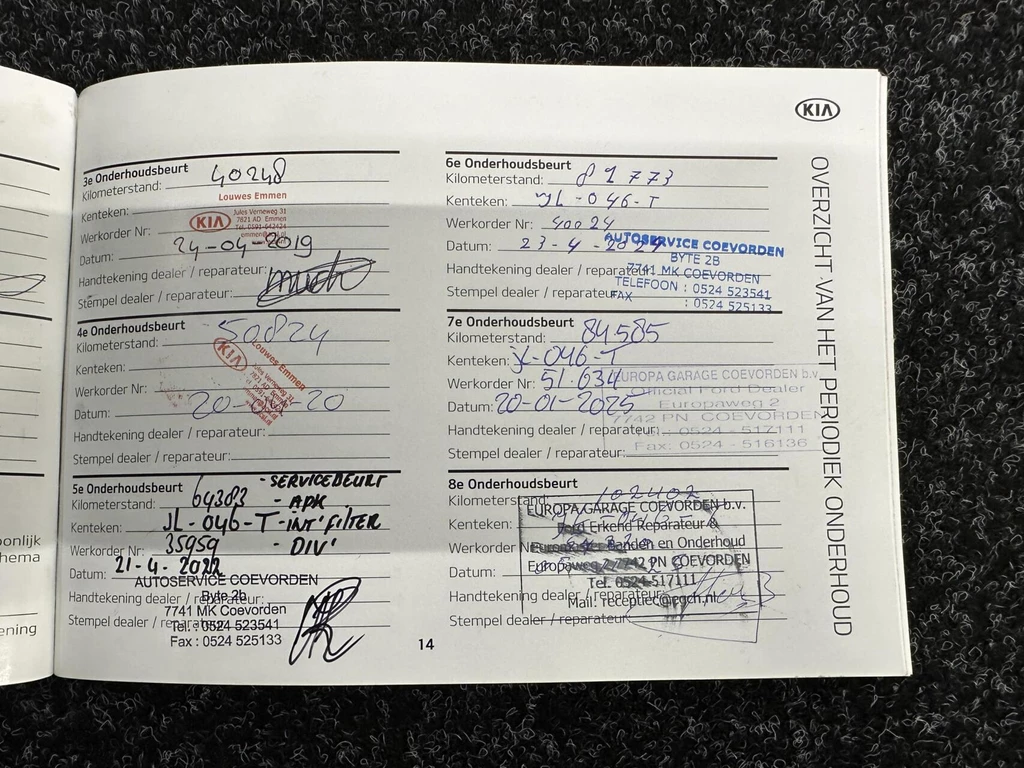 KIA
OVERZICHT VAN HET PERIODIEK ONDERHOUD
3e Onderhoudsbeurt
Kilometerstand: 40248
Louwes Emmen
Kenteken:
KIA
Jules Verneweg 31
7821 AD Emmen
Tel. 0591-642424
Werkorder Nr:
Datum: 24-04-2019
Handtekening dealer / reparateur:
Stempel dealer / reparateur:
4e Onderhoudsbeurt
Kilometerstand: 50824
KIA
Louwes Emmen
Kenteken:
Werkorder Nr:
Datum: 20-04-20
Handtekening dealer / reparateur:
Stempel dealer / reparateur:
5e Onderhoudsbeurt - SERVICEBEURT
Kilometerstand: 64383 - APK
Kenteken: JL-046-T - INT' FILTER
Werkorder Nr: 35959 - DIV'
Datum: 21-4-2022
AUTOSERVICE COEVORDEN
Handtekening dealer / reparateur:
Byte 2b
7741 MK Coevorden
Stempel dealer / reparateur:
Tel. : 0524 523541
Fax : 0524 525133
6e Onderhoudsbeurt
Kilometerstand: 81773
Kenteken: JL-046-T
Werkorder Nr: 40024
Datum: 23-4-
AUTOSERVICE COEVORDEN
BYTE 2B
Handtekening dealer / reparateur:
7741 MK COEVORDEN
TELEFOON : 0524 523541
Stempel dealer / reparateur:
FAX : 0524 525133
7e Onderhoudsbeurt
Kilometerstand: 84585
Kenteken: -046-T
Werkorder Nr: 51.634
EUROPA GARAGE COEVORDEN b.v.
Official Ford Dealer
Datum: 20-01-2025
Europaweg 2
7742 PN COEVORDEN
Handtekening dealer / reparateur:
: 0524 - 517111
Fax: 0524 - 516136
Stempel dealer / reparateur:
8e Onderhoudsbeurt
Kilometerstand: 102402
EUROPA GARAGE COEVORDEN b.v.
Kenteken:
Ford Erkend Reparateur &
Werkorder Nr
Banden en Onderhoud
Datum:
Europaweg 2 7742 PN COEVORDEN
Tel. 0524-517111
Handtekening dealer / reparateur:
Mail: receptiec@egch.nl
Stempel dealer / reparateur:
14
onlijk
hema
ening